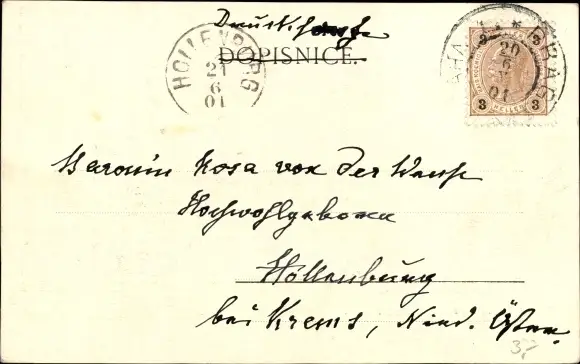 Drucksache
DOPISNICE.
HOLLENBURG
21
6
01
PRAHA PRAG
20
6
01
3 3
3 HELLER 3
Baronin Rosa von der Wense
Hochwohlgeboren
Hollenburg
bei Krems, Nied. Österr.
3,-